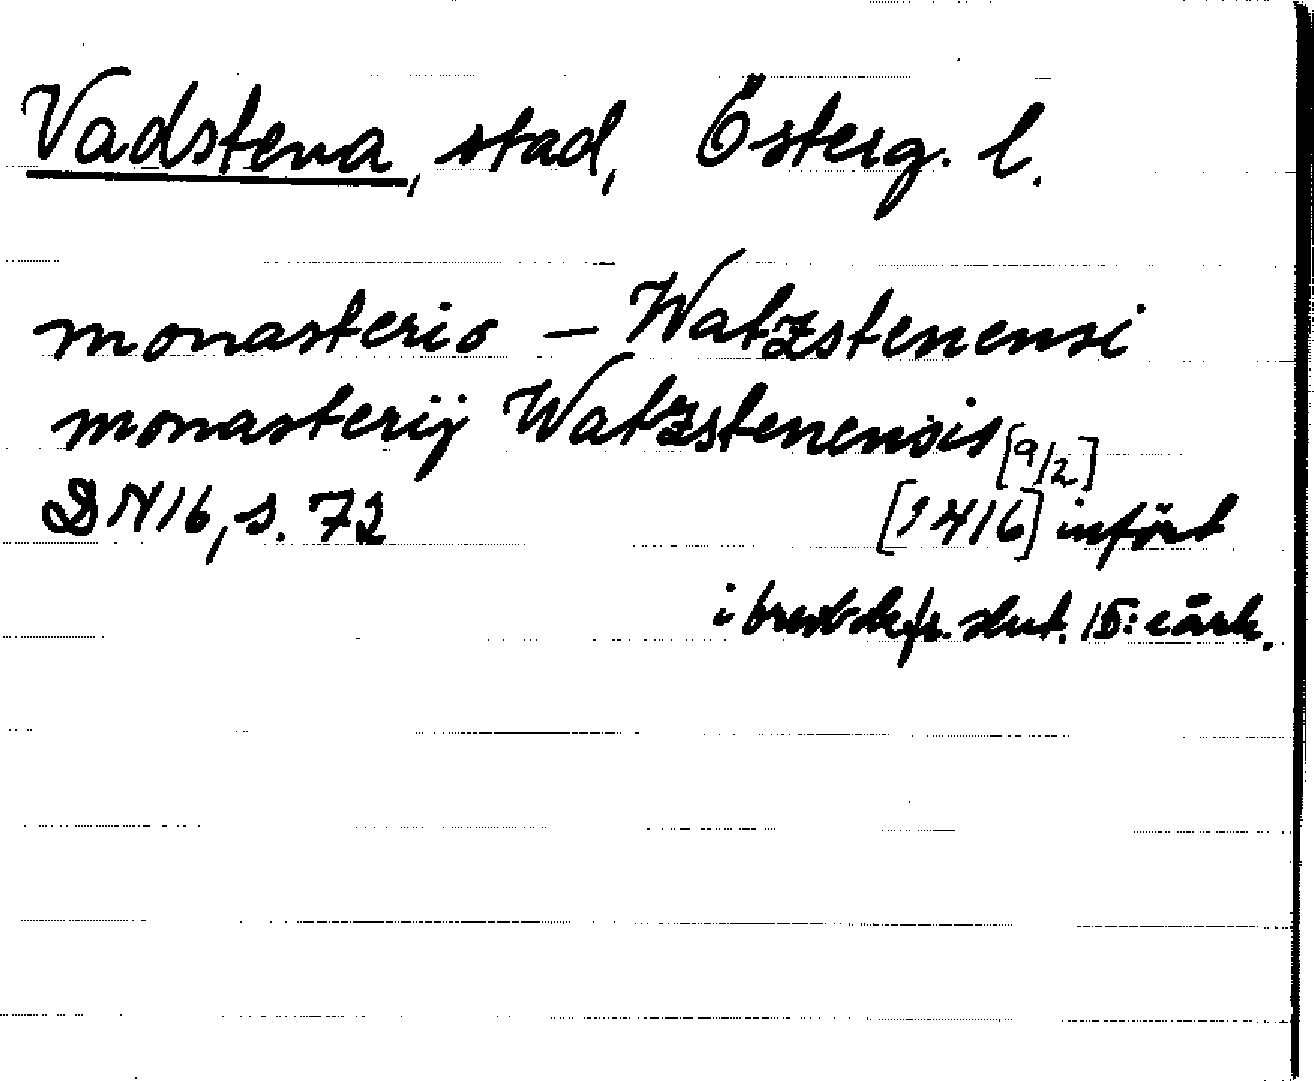 Vadstena, stad, Österg. l.
monasterio – Watzstenensi
monasterij Watzstenensis [9/2]
DN 16, s. 72 [1416] infört
i brevbok fr. slut. 15: e årh.